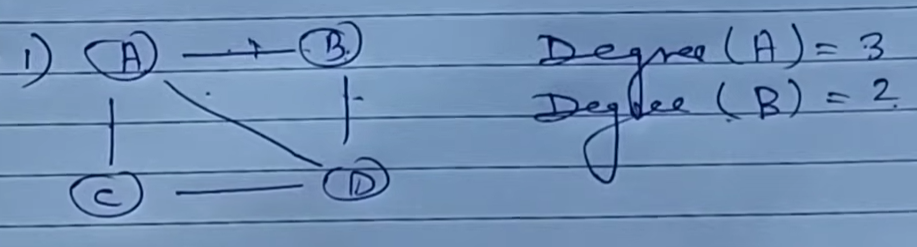 1) A B Degree (A) = 3
Degree (B) = 2
C D